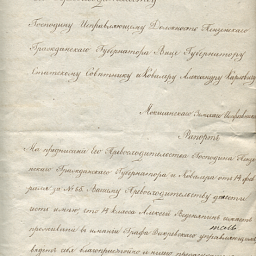 Господину Исправляющему Должность Пензенскаго
Гражданскаго Губернатора Вице Губернатору
Статскому Советнику и Кавалеру Александру Карловичу
Мокшанскаго Земскаго Исправника
Рапортъ
На предписание Его Превосходительства Господина Пензен-
скаго Гражданскаго Губернатора и Кавалера отъ 14 фев
раля за № 65. Вашему Превосходительству донести
честь имею, что 14 класса Алексей
тамъ
проживали в имении Графа управляющимъ
велъ себя благопристойно и